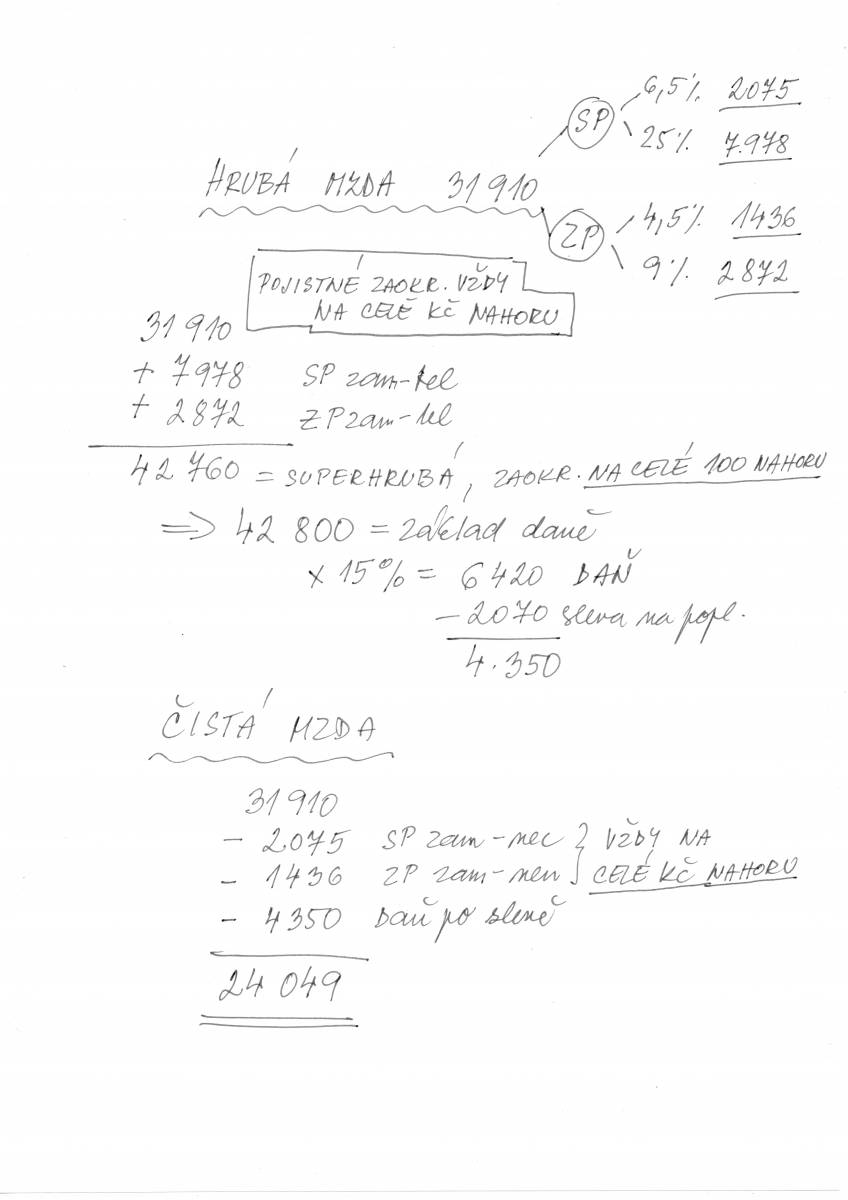 6,5%. 2075
SP
25%. 7.978
HRUBÁ MZDA 31 910
ZP
4,5%. 1436
9%. 2872
POJISTNÉ ZAOKR. VŽDY
NA CELÉ KČ NAHORU
31 910
+ 7978 SP zam-tel
+ 2872 ZP zam-tel
42 760 = SUPERHRUBÁ, ZAOKR. NA CELÉ 100 NAHORU
=> 42 800 = základ daně
x 15% = 6420 DAŇ
- 2070 sleva na popl.
4.350
ČISTÁ MZDA
31910
- 2075 SP zam-nec } VŽDY NA
- 1436 ZP zam-nen } CELÉ KČ NAHORU
- 4350 Daň po slevě
24 049